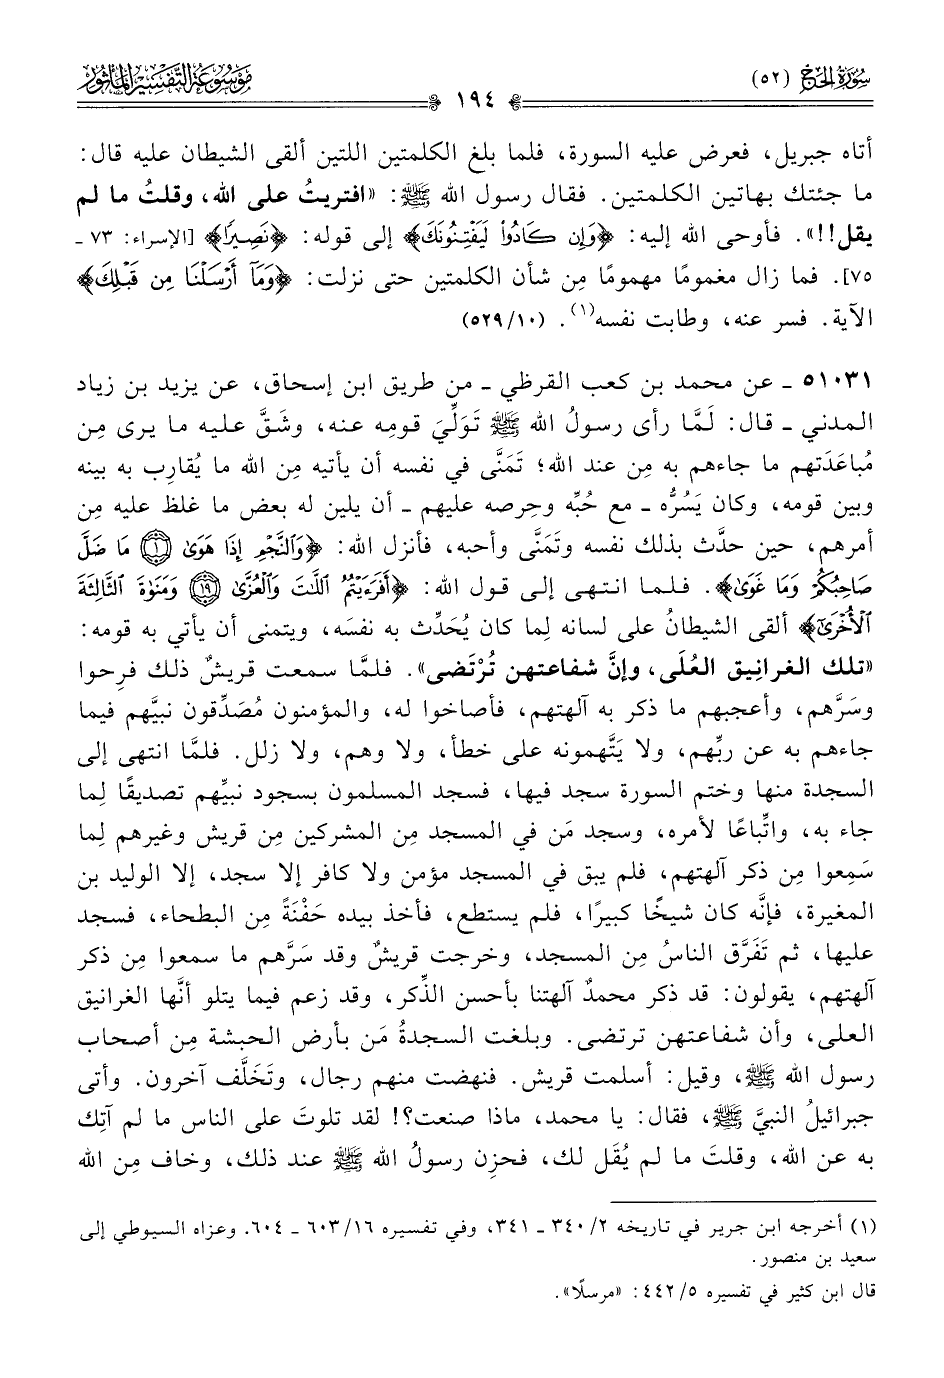 سورة الحج (٥٢)
١٩٤
موسوعة التفسير المأثور
أتاه جبريل، فعرض عليه السورة، فلما بلغ الكلمتين اللتين ألقى الشيطان عليه قال:
ما جئتك بهاتين الكلمتين. فقال رسول الله ﷺ: «افتريتُ على الله، وقلتُ ما لم
يقل!!». فأوحى الله إليه: ﴿وَإِن كَادُواْ لَيَفْتِنُونَكَ﴾ إلى قوله: ﴿نَصِيرًا﴾ [الإسراء: ٧٣ ـ
٧٥]. فما زال مغمومًا مهمومًا مِن شأن الكلمتين حتى نزلت: ﴿وَمَآ أَرْسَلْنَا مِن قَبْلِكَ﴾
الآية. فسر عنه، وطابت نفسه(١). (١٠/٥٢٩)
٥١٠٣١ ـ عن محمد بن كعب القرظي ـ من طريق ابن إسحاق، عن يزيد بن زياد
المدني ـ قال: لَمَّا رأى رسولُ الله ﷺ تَوَلِّيَ قومِه عنه، وشَقَّ عليه ما يرى مِن
مُباعَدَتهم ما جاءهم به مِن عند الله؛ تَمَنَّى في نفسه أن يأتيه مِن الله ما يُقارِب به بينه
وبين قومه، وكان يَسُرُّه ـ مع حُبِّه وحِرصه عليهم ـ أن يلين له بعض ما غلظ عليه مِن
أمرهم، حين حدَّث بذلك نفسه وتَمَنَّى وأحبه، فأنزل الله: ﴿وَٱلنَّجْمِ إِذَا هَوَىٰ ١ مَا ضَلَّ
صَاحِبُكُمْ وَمَا غَوَىٰ﴾. فلما انتهى إلى قول الله: ﴿أَفَرَءَيْتُمُ ٱللَّٰتَ وَٱلْعُزَّىٰ ١٩ وَمَنَوٰةَ ٱلثَّالِثَةَ
ٱلْأُخْرَىٰٓ﴾ ألقى الشيطانُ على لسانه لِما كان يُحَدِّث به نفسَه، ويتمنى أن يأتي به قومه:
«تلك الغرانِيق العُلَى، وإنَّ شفاعتهن تُرْتَضى». فلمَّا سمعت قريشٌ ذلك فرِحوا
وسَرَّهم، وأعجبهم ما ذكر به آلهتهم، فأصاخوا له، والمؤمنون مُصَدِّقون نبيَّهم فيما
جاءهم به عن ربِّهم، ولا يَتَّهِمونه على خطأ، ولا وهم، ولا زلل. فلمَّا انتهى إلى
السجدة منها وختم السورة سجد فيها، فسجد المسلمون بسجود نبيِّهم تصديقًا لِما
جاء به، واتِّباعًا لأمره، وسجد مَن في المسجد مِن المشركين مِن قريش وغيرهم لِما
سَمِعوا مِن ذكر آلهتهم، فلم يبق في المسجد مؤمن ولا كافر إلا سجد، إلا الوليد بن
المغيرة، فإنَّه كان شيخًا كبيرًا، فلم يستطع، فأخذ بيده حَفْنَةً مِن البطحاء، فسجد
عليها، ثم تَفَرَّق الناسُ مِن المسجد، وخرجت قريشٌ وقد سَرَّهم ما سمعوا مِن ذكر
آلهتهم، يقولون: قد ذكر محمدٌ آلهتنا بأحسن الذِّكر، وقد زعم فيما يتلو أنَّها الغرانيق
العلى، وأن شفاعتهن ترتضى. وبلغت السجدةُ مَن بأرض الحبشة مِن أصحاب
رسول الله ﷺ، وقيل: أسلمت قريش. فنهضت منهم رجال، وتَخَلَّف آخرون. وأتى
جبرائيلُ النبيَّ ﷺ، فقال: يا محمد، ماذا صنعت؟! لقد تلوتَ على الناس ما لم آتِك
به عن الله، وقلتَ ما لم يُقَل لك، فحزِن رسولُ الله ﷺ عند ذلك، وخاف مِن الله
(١) أخرجه ابن جرير في تاريخه ٢/ ٣٤٠ ـ ٣٤١، وفي تفسيره ١٦/ ٦٠٣ ـ ٦٠٤. وعزاه السيوطي إلى
سعيد بن منصور.
قال ابن كثير في تفسيره ٥/ ٤٤٢: «مرسلًا».